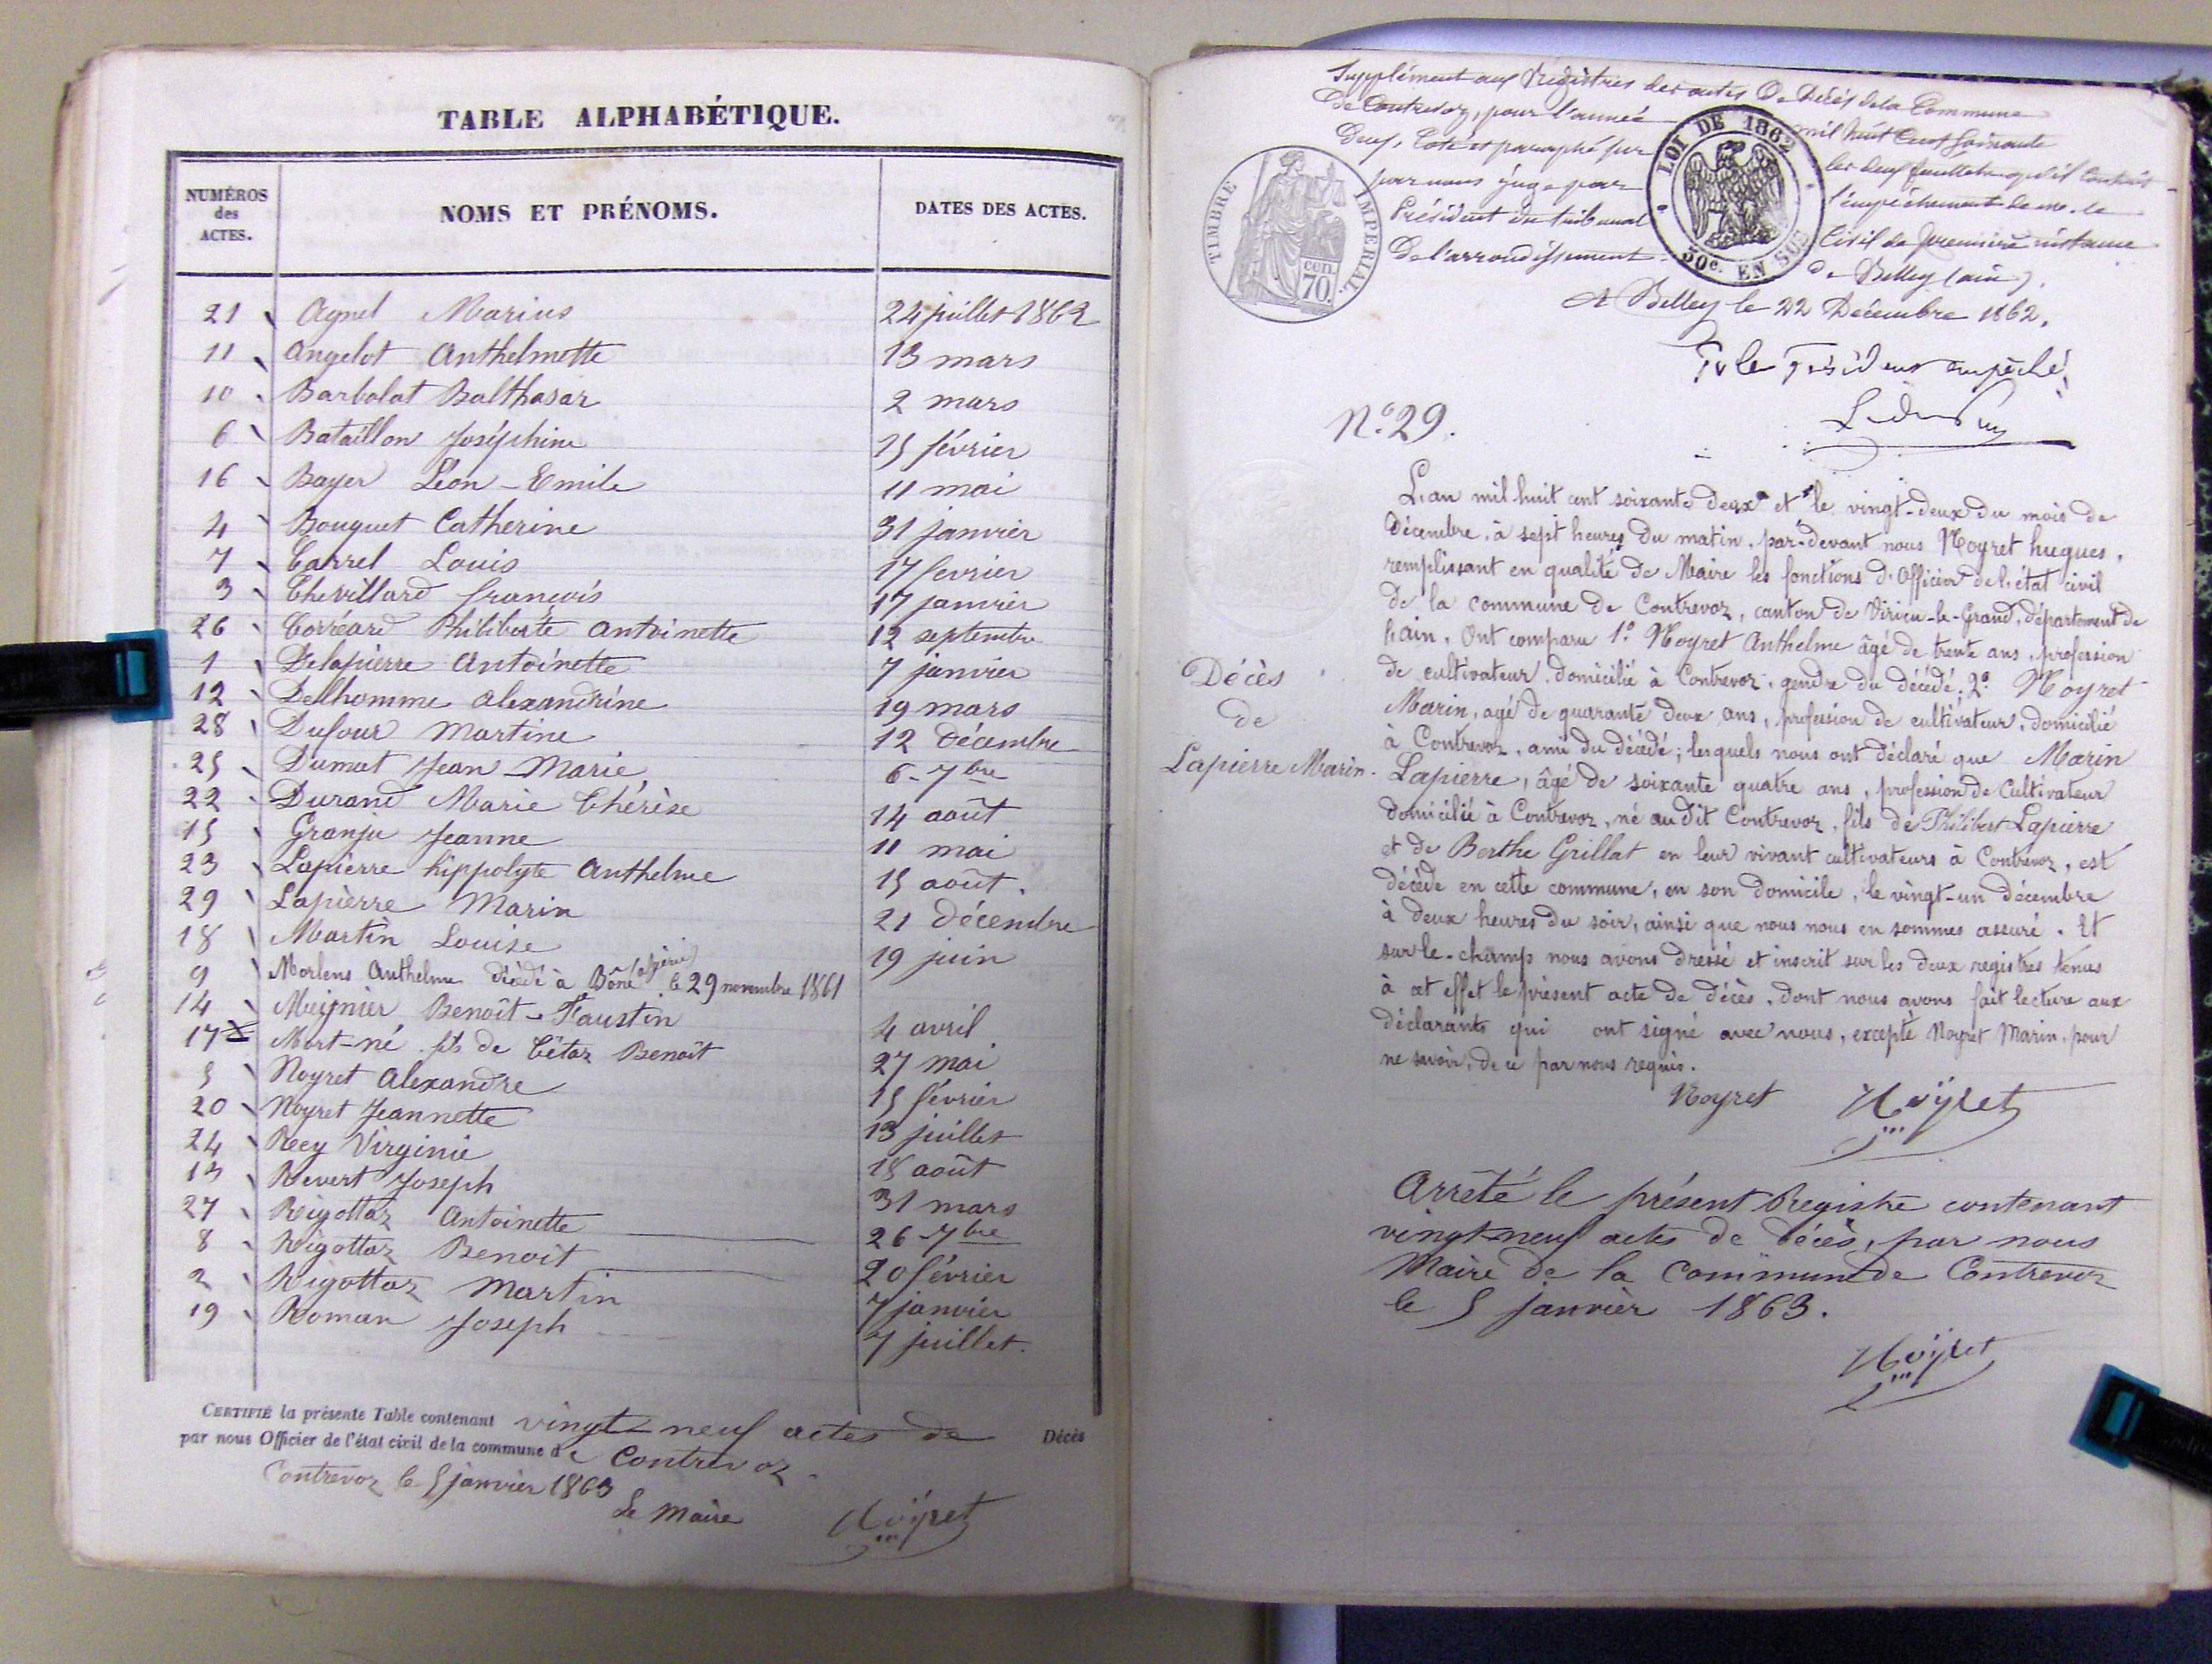 TABLE ALPHABÉTIQUE.
NUMÉROS des ACTES. NOMS ET PRÉNOMS. DATES DES ACTES.
21 Agnel Marius 24 juillet 1862
11 Angelot Anthelmette 13 mars
10 Barbolat Balthasar 2 mars
6 Bataillon Joséphine 15 février
16 Bayer Léon-Emile 11 mai
4 Bouquet Catherine 31 janvier
7 Carrel Louis 17 fevrier
3 Chevillard françois 17 janvier
26 Corréard Philiberte Antoinette 12 septembre
1 Delapierre Antoinette 7 janvier
12 Delhomme alexandrine 19 mars
28 Dufour Martine 12 Décembre
25 Dumat Jean-Marie 6-7bre
22 Durand Marie Thérèse 14 août
15 Granju Jeanne 11 mai
23 Lapierre hippolyte Anthelme 15 août.
29 Lapierre Marin 21 décembre
18 Martin Louise 19 juin
9 Morlens Anthelme décédé à Bône (algérie) le 29 novembre 1861
14 Meignier Benoît-Faustin 4 avril
17 Mort-né fils de Cétaz Benoît 27 mai
5 Noyret Alexandre 15 février
20 Noyret Jeannette 13 juillet
24 Recy Virginie 18 août
13 Revert Joseph 31 mars
27 Rigottaz Antoinette 26-7bre
8 Rigottaz Benoit 20 février
2 Rigottaz Martin 7 janvier
19 Roman Joseph 7 juillet.
CERTIFIÉ la présente Table contenant vingt-neuf actes de Décès
par nous Officier de l'état civil de la commune de Contrevoz.
Contrevoz le 5 janvier 1863
Le Maire Noÿret
Supplément aux Registres des actes De Décès de la Commune
de Contrevoz, pour l'année mil huit Cent soixante
Deux, Coté et paraphé sur les deux feuillets qu'il Contient
par nous juge par l'empêchement de Mr. le
Président du tribunal Civil de première instance
De l'arrondissement de Belley (ain).
TIMBRE IMPÉRIAL
cen. 70.
LOI DE 1862
50c. EN SUS
A Belley le 22 Décembre 1862.
Pr le Président empêché,
No. 29.
Décès
de
Lapierre Marin.
L'an mil huit cent soixante deux et le vingt-deux du mois de
Décembre, à sept heures Du matin, par-devant nous Noyret hugues,
remplissant en qualité de Maire les fonctions d'Officier de l'état civil
de la commune de Contrevoz, canton de Virieu-le-Grand, département de
l'ain, Ont comparu 1o. Noyret Anthelme âgé de trente ans, profession
de cultivateur, domicilié à Contrevoz, gendre du décédé. 2o. Noyret
Marin, agé de quarante deux ans, profession de cultivateur, domicilié
à Contrevoz, ami du décédé; lesquels nous ont déclaré que Marin
Lapierre, âgé de soixante quatre ans, profession de Cultivateur
domicilié à Contrevoz, né au dit Contrevoz, fils de Philibert Lapierre
et de Berthe Grillat en leur vivant cultivateurs à Contrevoz, est
décédé en cette commune, en son domicile, le vingt-un décembre
à deux heures Du soir, ainsi que nous nous en sommes assuré. Et
sur-le-champ nous avons dressé et inscrit sur les deux registres tenus
à cet effet le présent acte de décès, dont nous avons fait lecture aux
déclarants qui ont signé avec nous, excepté Noyret Marin, pour
ne savoir, de ce par nous requis.
Noyret Noÿret
Arrêté le présent Registre contenant
vingt-neuf actes de décès, par nous
Maire de la Commune de Contrevoz
le 5 janvier 1863.
Noÿret